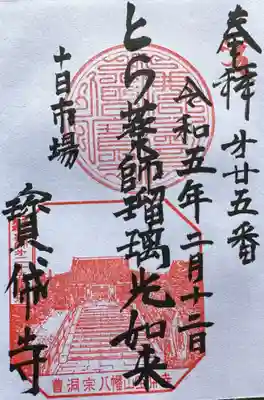 奉拝 才廿五番
令和五年二月十二日
とら薬師瑠璃光如来
十日市場
寳帒寺
曹洞宗八幡山